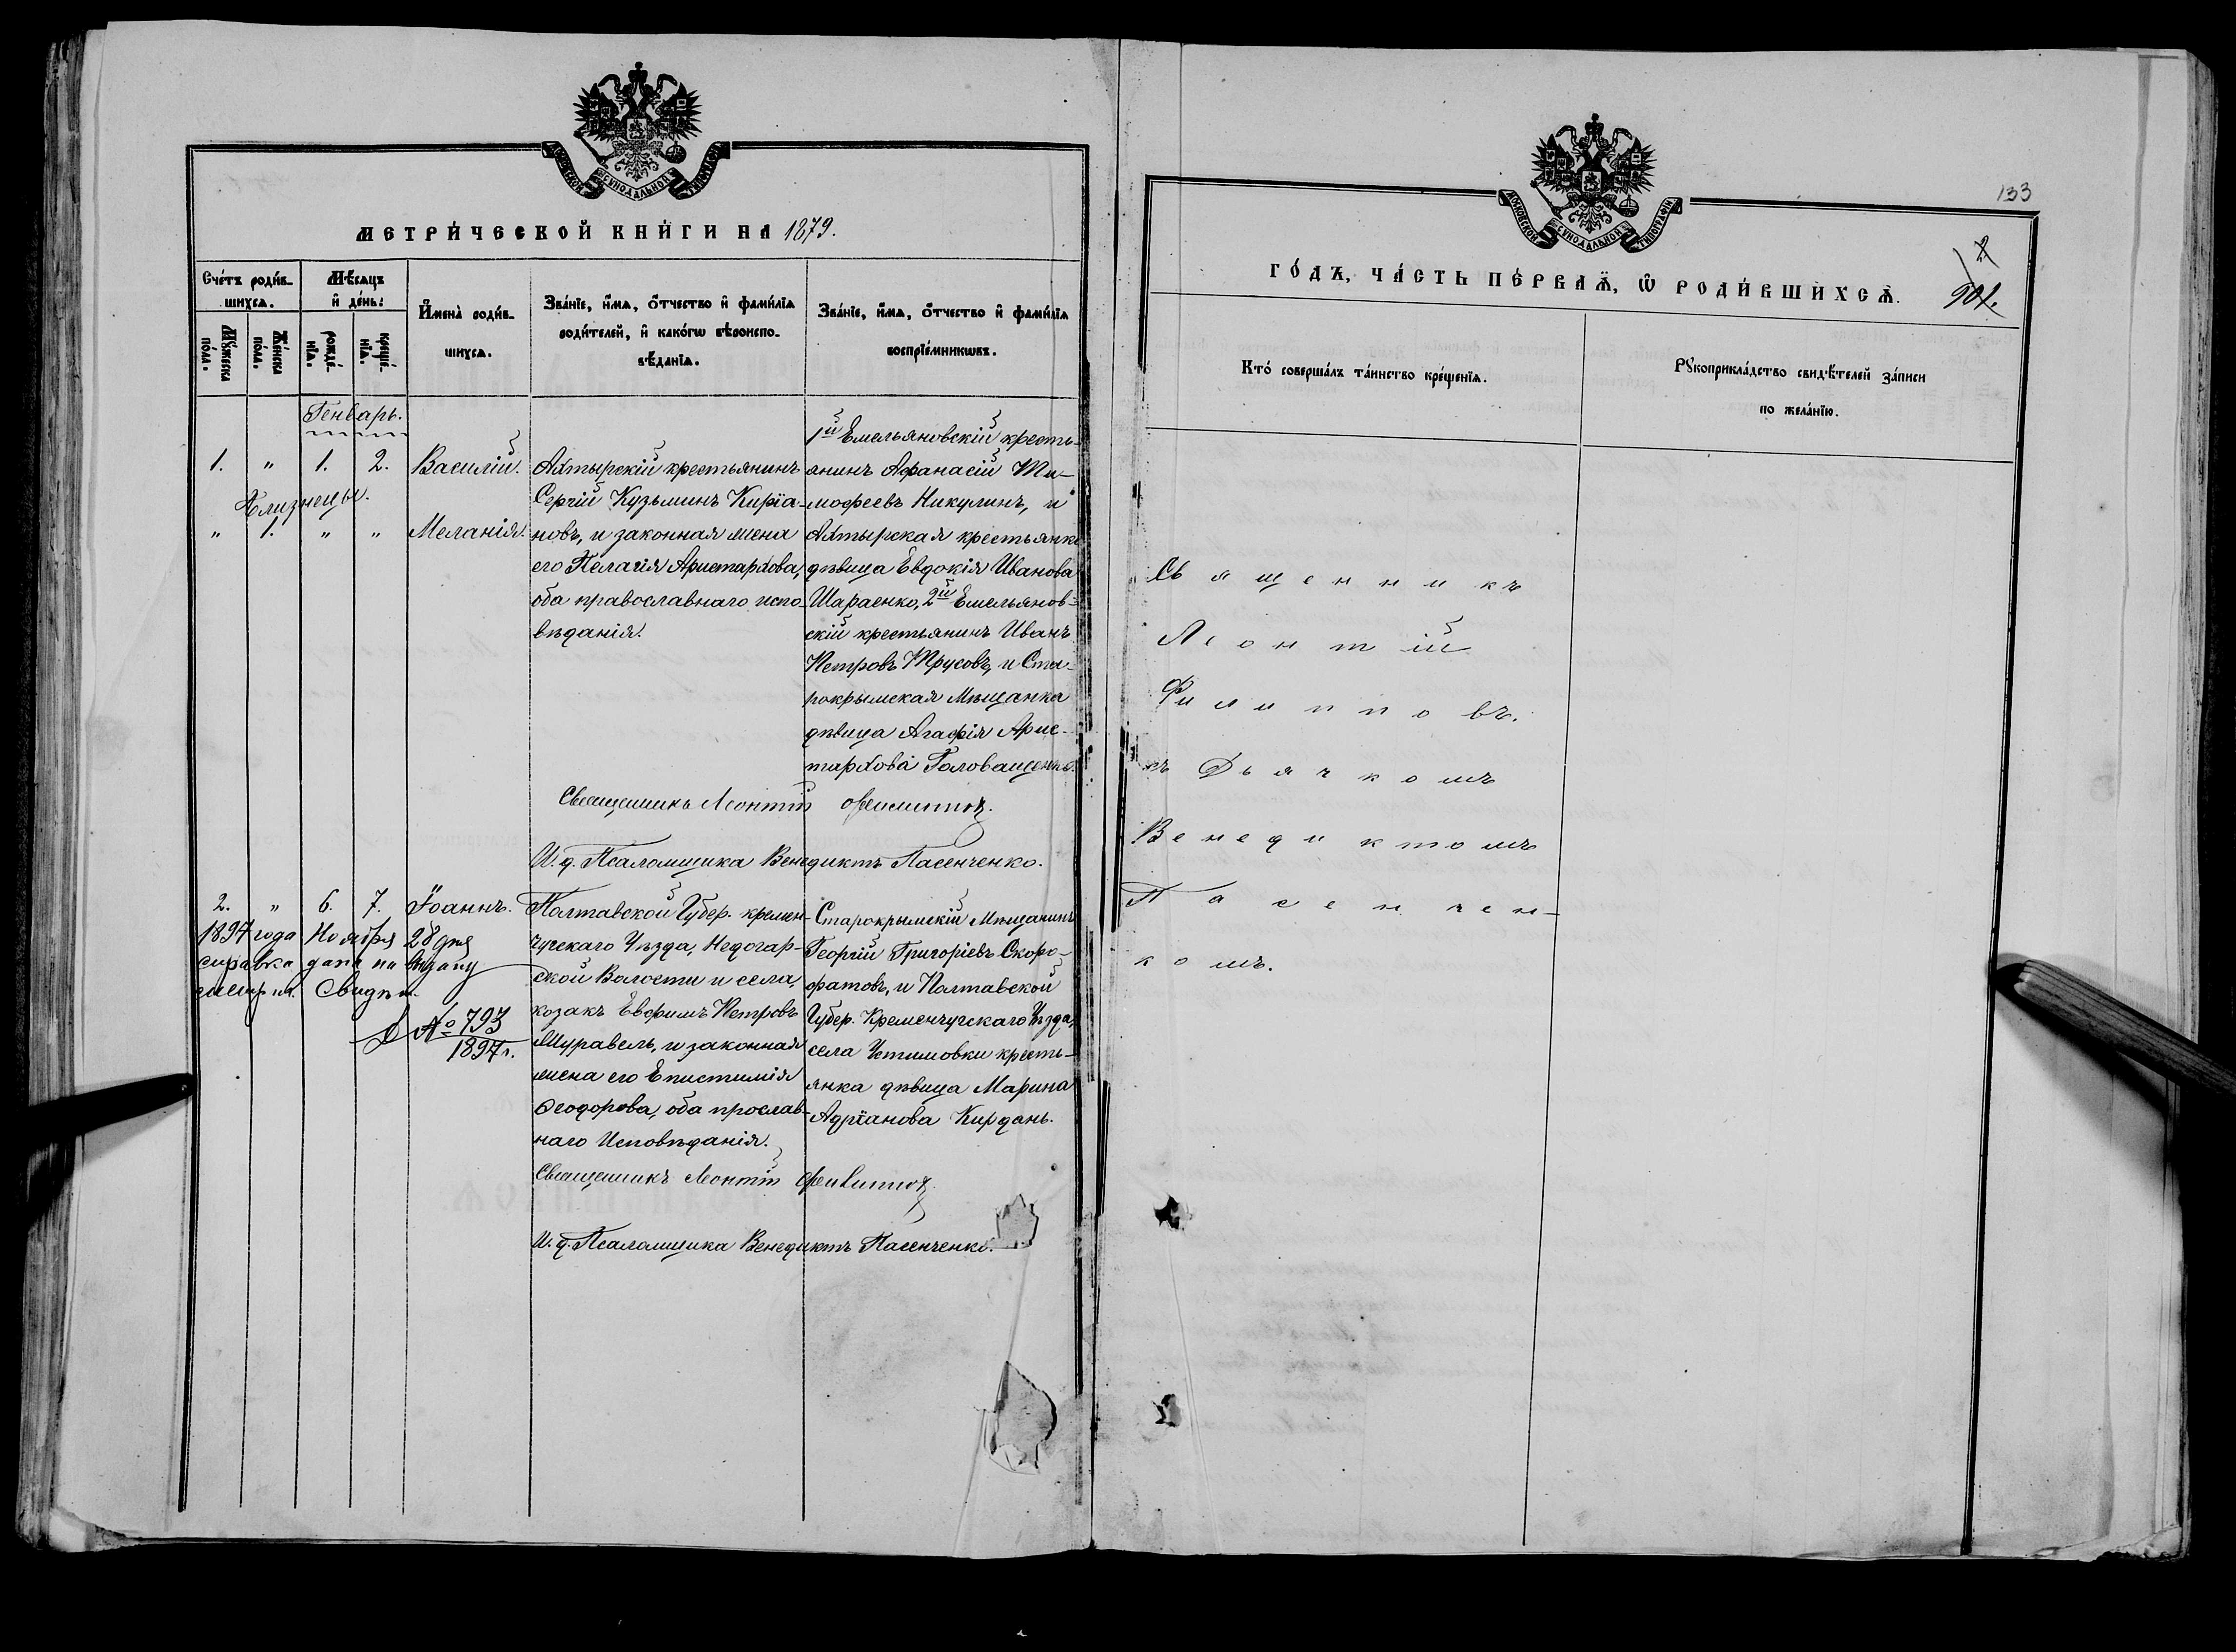 МОСКОВСКОЙ СУНОДАЛЬНОЙ ТИПОГРАФІИ
МЕТРИ́ЧЕСКОЙ КНИ́ГИ НА 1879.
Сче́тъ роди́в-
шихсѧ.
Мѣ́сѧцъ
и҆ де́нь:
Мꙋ́жеска
по́ла.
Же́нска
по́ла.
рожде́-
нїѧ.
креще́-
нїѧ.
И҆мена̀ роди́в-
шихсѧ.
Зва́нїе, и҆́мѧ, ѻ҆́тчество и҆ фами́лїѧ
роди́телей, и҆ како́гѡ вѣроиспо-
вѣ́данїѧ.
Зва́нїе, и҆́мѧ, ѻ҆́тчество и҆ фами́лїѧ
воспрїе́мникѡвъ.
Генварь.
1. " 1. 2. Василій.
Близнецы.
" 1. " " Меланія.
Ахтырскій крестьянинъ
Сергій Кузьминъ Киріа-
новъ, и законная жена
его Пелагія Аристархова,
оба православнаго испо-
вѣданія.
1й Емельяновскій кресть-
янинъ Афанасій Ти-
мофеевъ Никулинъ, и
Ахтырская крестьянка
дѣвица Евдокія Иванова
Шараенко, 2й Емельянов-
скій крестьянинъ Иванъ
Петровъ Трусовъ, и Ста-
рокрымская Мѣщанка
дѣвица Агафія Арис-
тархова Головащенко.
Священникъ Леонтій Филиппов.
И. д. Псаломщика Венедиктъ Пасенченко.
2. " 6. 7. Іоаннъ.
1897 года Ноября 28 дня
справка дана на выдачу
метрич. Свидѣт.
№ 793
1897 г.
Полтавской Губер. кремен-
чугскаго Уѣзда, Недогар-
ской Волости и села,
козакъ Евфимъ Петровъ
Журавель, и законная
жена его Епистимія
Ѳеодорова, оба прослав-
наго Исповѣданія.
Старокрымскій Мѣщанинъ
Георгій Григоріевъ Скоро-
фатовъ, и Полтавской
Губер. Кременчугскаго Уѣзда,
села Устимовки кресть-
янка дѣвица Марина
Адріанова Кирдань.
Священникъ Леонтій Филиппов.
И. д. Псаломщика Венедиктъ Пасенченко.
133
МОСКОВСКОЙ СУНОДАЛЬНОЙ ТИПОГРАФІИ
2
ГО́ДЪ, ЧА́СТЬ ПЕ́РВАѦ, Ѡ҆ РОДИ́ВШИХСѦ.
Кто́ соверша́лъ та́инство креще́нїѧ.
Рꙋкоприкла́дство свидѣ́телей за́писи
по жела́нїю.
Священникъ
Леонтій
Филипповъ.
съ Дьячкомъ
Венедиктомъ
Пасенчен-
комъ.